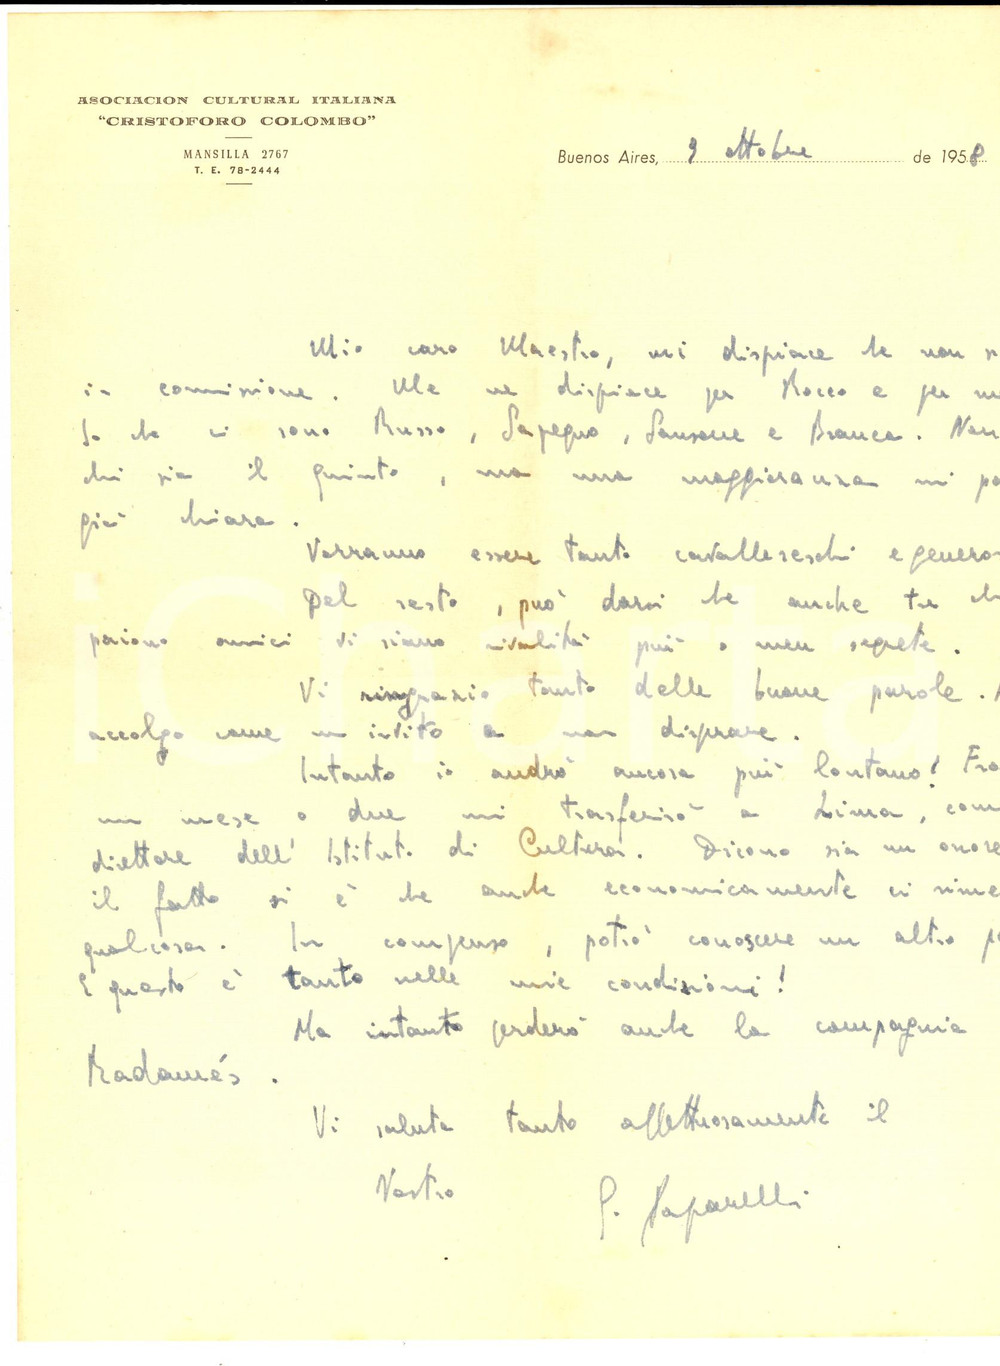 ASOCIACION CULTURAL ITALIANA
"CRISTOFORO COLOMBO"
MANSILLA 2767
T. E. 78-2444
Buenos Aires, 9 ottobre de 1958
Mio caro Maestro, mi dispiace che non s
in commissione. Me ne dispiace per Rocco e per me
So che ci sono Russo, Sapegno, Sansone e Branca. Non
chi sia il quinto, ma una maggioranza mi pa
già chiara.
Vorranno essere tanto cavallereschi e generos
Del resto, può darsi che anche tra ch
paiono amici vi siano rivalità più o meno segrete.
Vi ringrazio tanto delle buone parole.
accolgo come un invito a non disperare.
Intanto io andrò ancora più lontano! Fra
un mese o due mi trasferirò a Lima, com
direttore dell'Istituto di Cultura. Dicono sia un onore
il fatto si è che anche economicamente ci rime
qualcosa. In compenso, potrò conoscere un altro pa
E questo è tanto nelle mie condizioni!
Ma intanto perderò anche la compagnia
Radamés.
Vi saluta tanto affettuosamente il
Vostro
G. Paparelli
iCharta